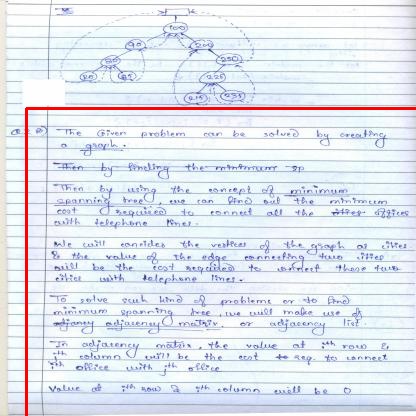 100
90
200
80
250
20
85
225
215 235
Q. 2. B) The Given problem can be solved by creating
a graph.
Then by finding the minimum sp
Then by using the concept of minimum
spanning tree, we can find out the minimum
cost required to connect all the cities offices
with telephone lines.
We will consider the vertices of the graph as cities
& the value of the edge connecting two cities
will be the cost required to connect those two
cities with telephone lines.
To solve such kind of problems or to find
minimum spanning tree, we will make use of
adjancy adjacency matrix. or adjacency list.
In adjacency matrix, the value at ith row &
jth column will be the cost to req. to connect
ith office with jth office
Value at ith row & ith column will be 0